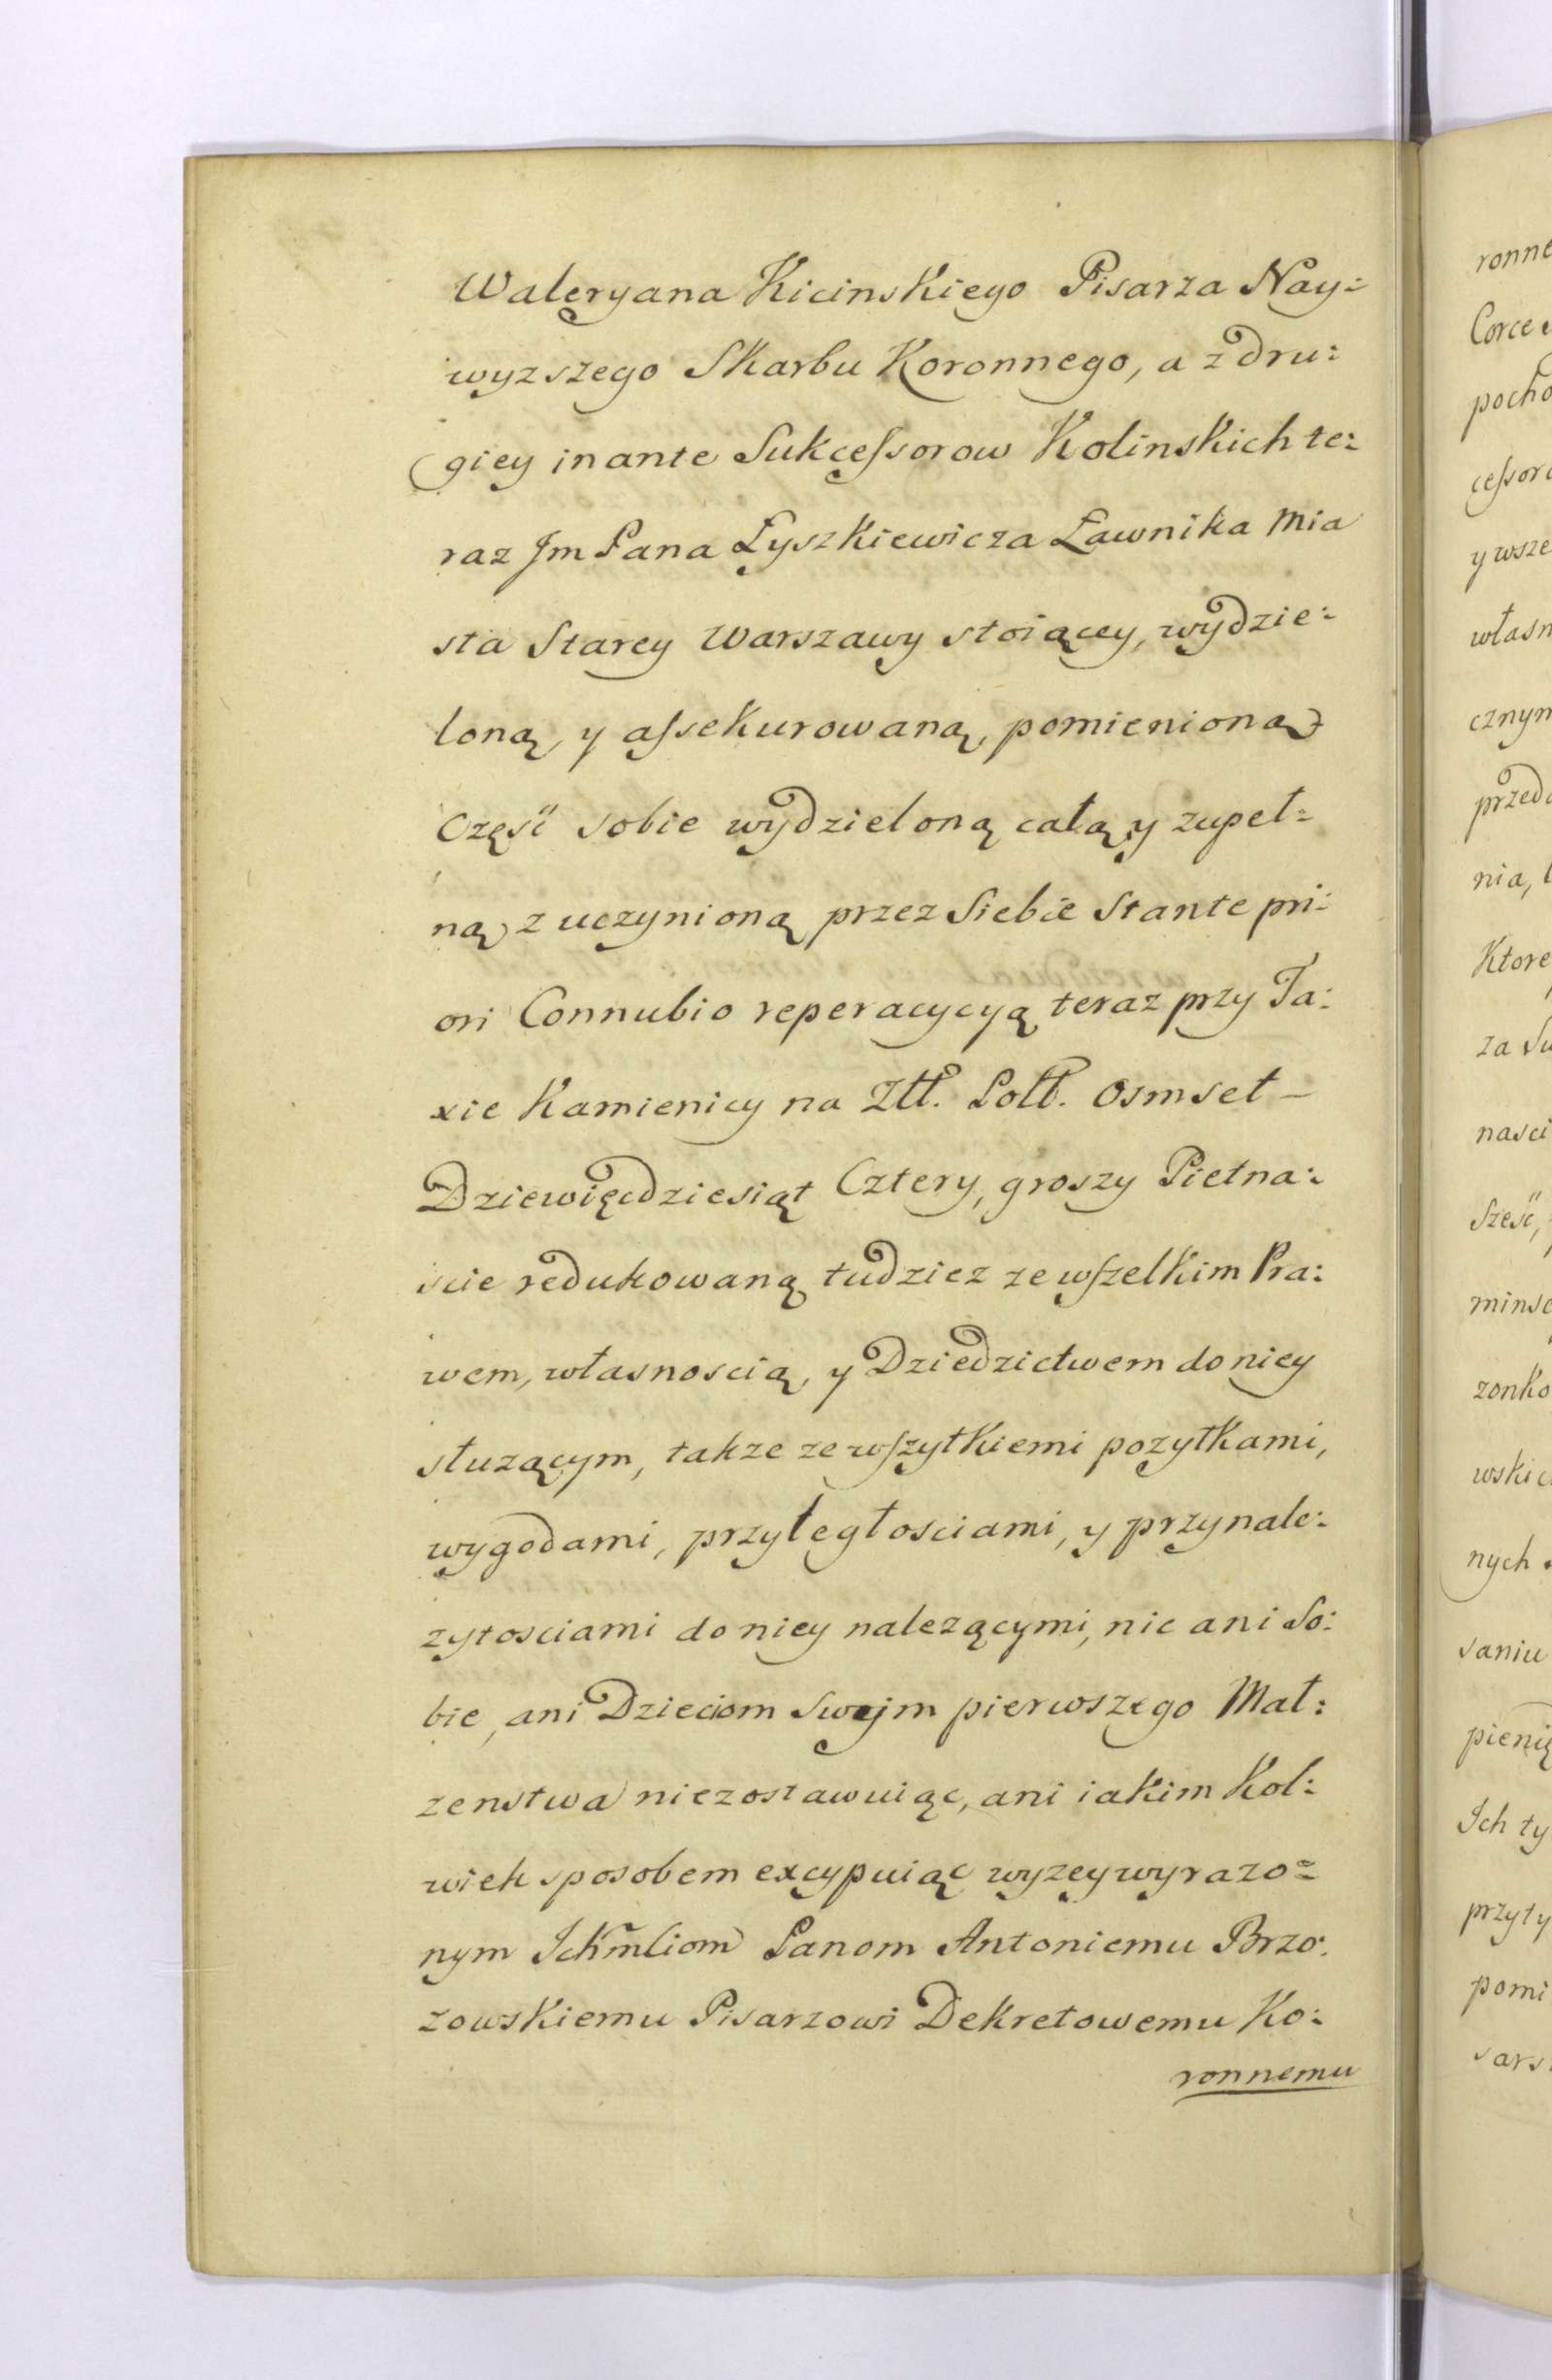 Waleryana Kicinskiego Pisarza Nay:
wyzszego Skarbu Koronnego, a z dru:
giey in ante Sukcessorow Kolinskich te:
raz Jm Pana Łyszkiewicza Ławnika Mia
sta Starey Warszawy stoiącey, wydzie:
loną, y assekurowaną, pomienioną
Część sobie wydzieloną całą, y zupeł:
ną z uczynioną przez Siebie Stante pri:
ori Connubio reperacycyą teraz przy Ta:
xie Kamienicy na Ztt. Poltt. Osmset —
Dziewięcdziesiąt Cztery, groszy Pietna:
scie redukowaną tudziez ze wszelkim Pra:
wem, własnoscią, y Dziedzictwem do niey
słuzącym, takze ze wszytkiemi pozytkami,
wygodami, przyległosciami, y przynale:
zytosciami do niey nalezącymi, nic ani So:
bie, ani Dzieciom Swojm pierwszego Mał:
zenstwa niezostawuiąc, ani iakim Kol:
wiek sposobem excypuiąc wyzey wyrazo:
nym Ichmciom Panom Antoniemu Brzo:
zowskiemu Pisarzowi Dekretowemu Ko:
ronnemu
ronne
Corce
pocho
cessoro
y wsze
własn
cznym
przeda
nia,
Ktore
za Su
nasci
Sześć,
minsc
zonko
wskic
nych
saniu
pienię
Ich ty
przyty
pomi
sars